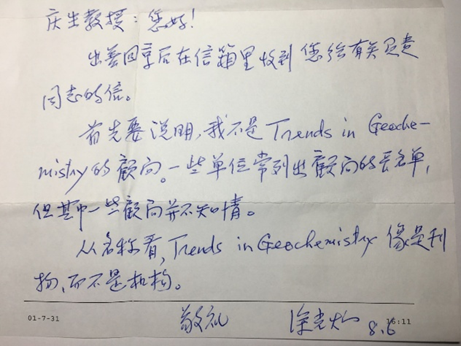 庆生教授：您好！
出差回京后在信箱里收到您给有关负责
同志的信。
首先要说明，我不是Trends in Geoche-
mistry的顾问。一些单位常列出顾问的长名单，
但其中一些顾问并不知情。
从名称看，Trends in Geochemistry像是刊
物，而不是机构。
01-7-31 :11
敬礼 徐光 8.6